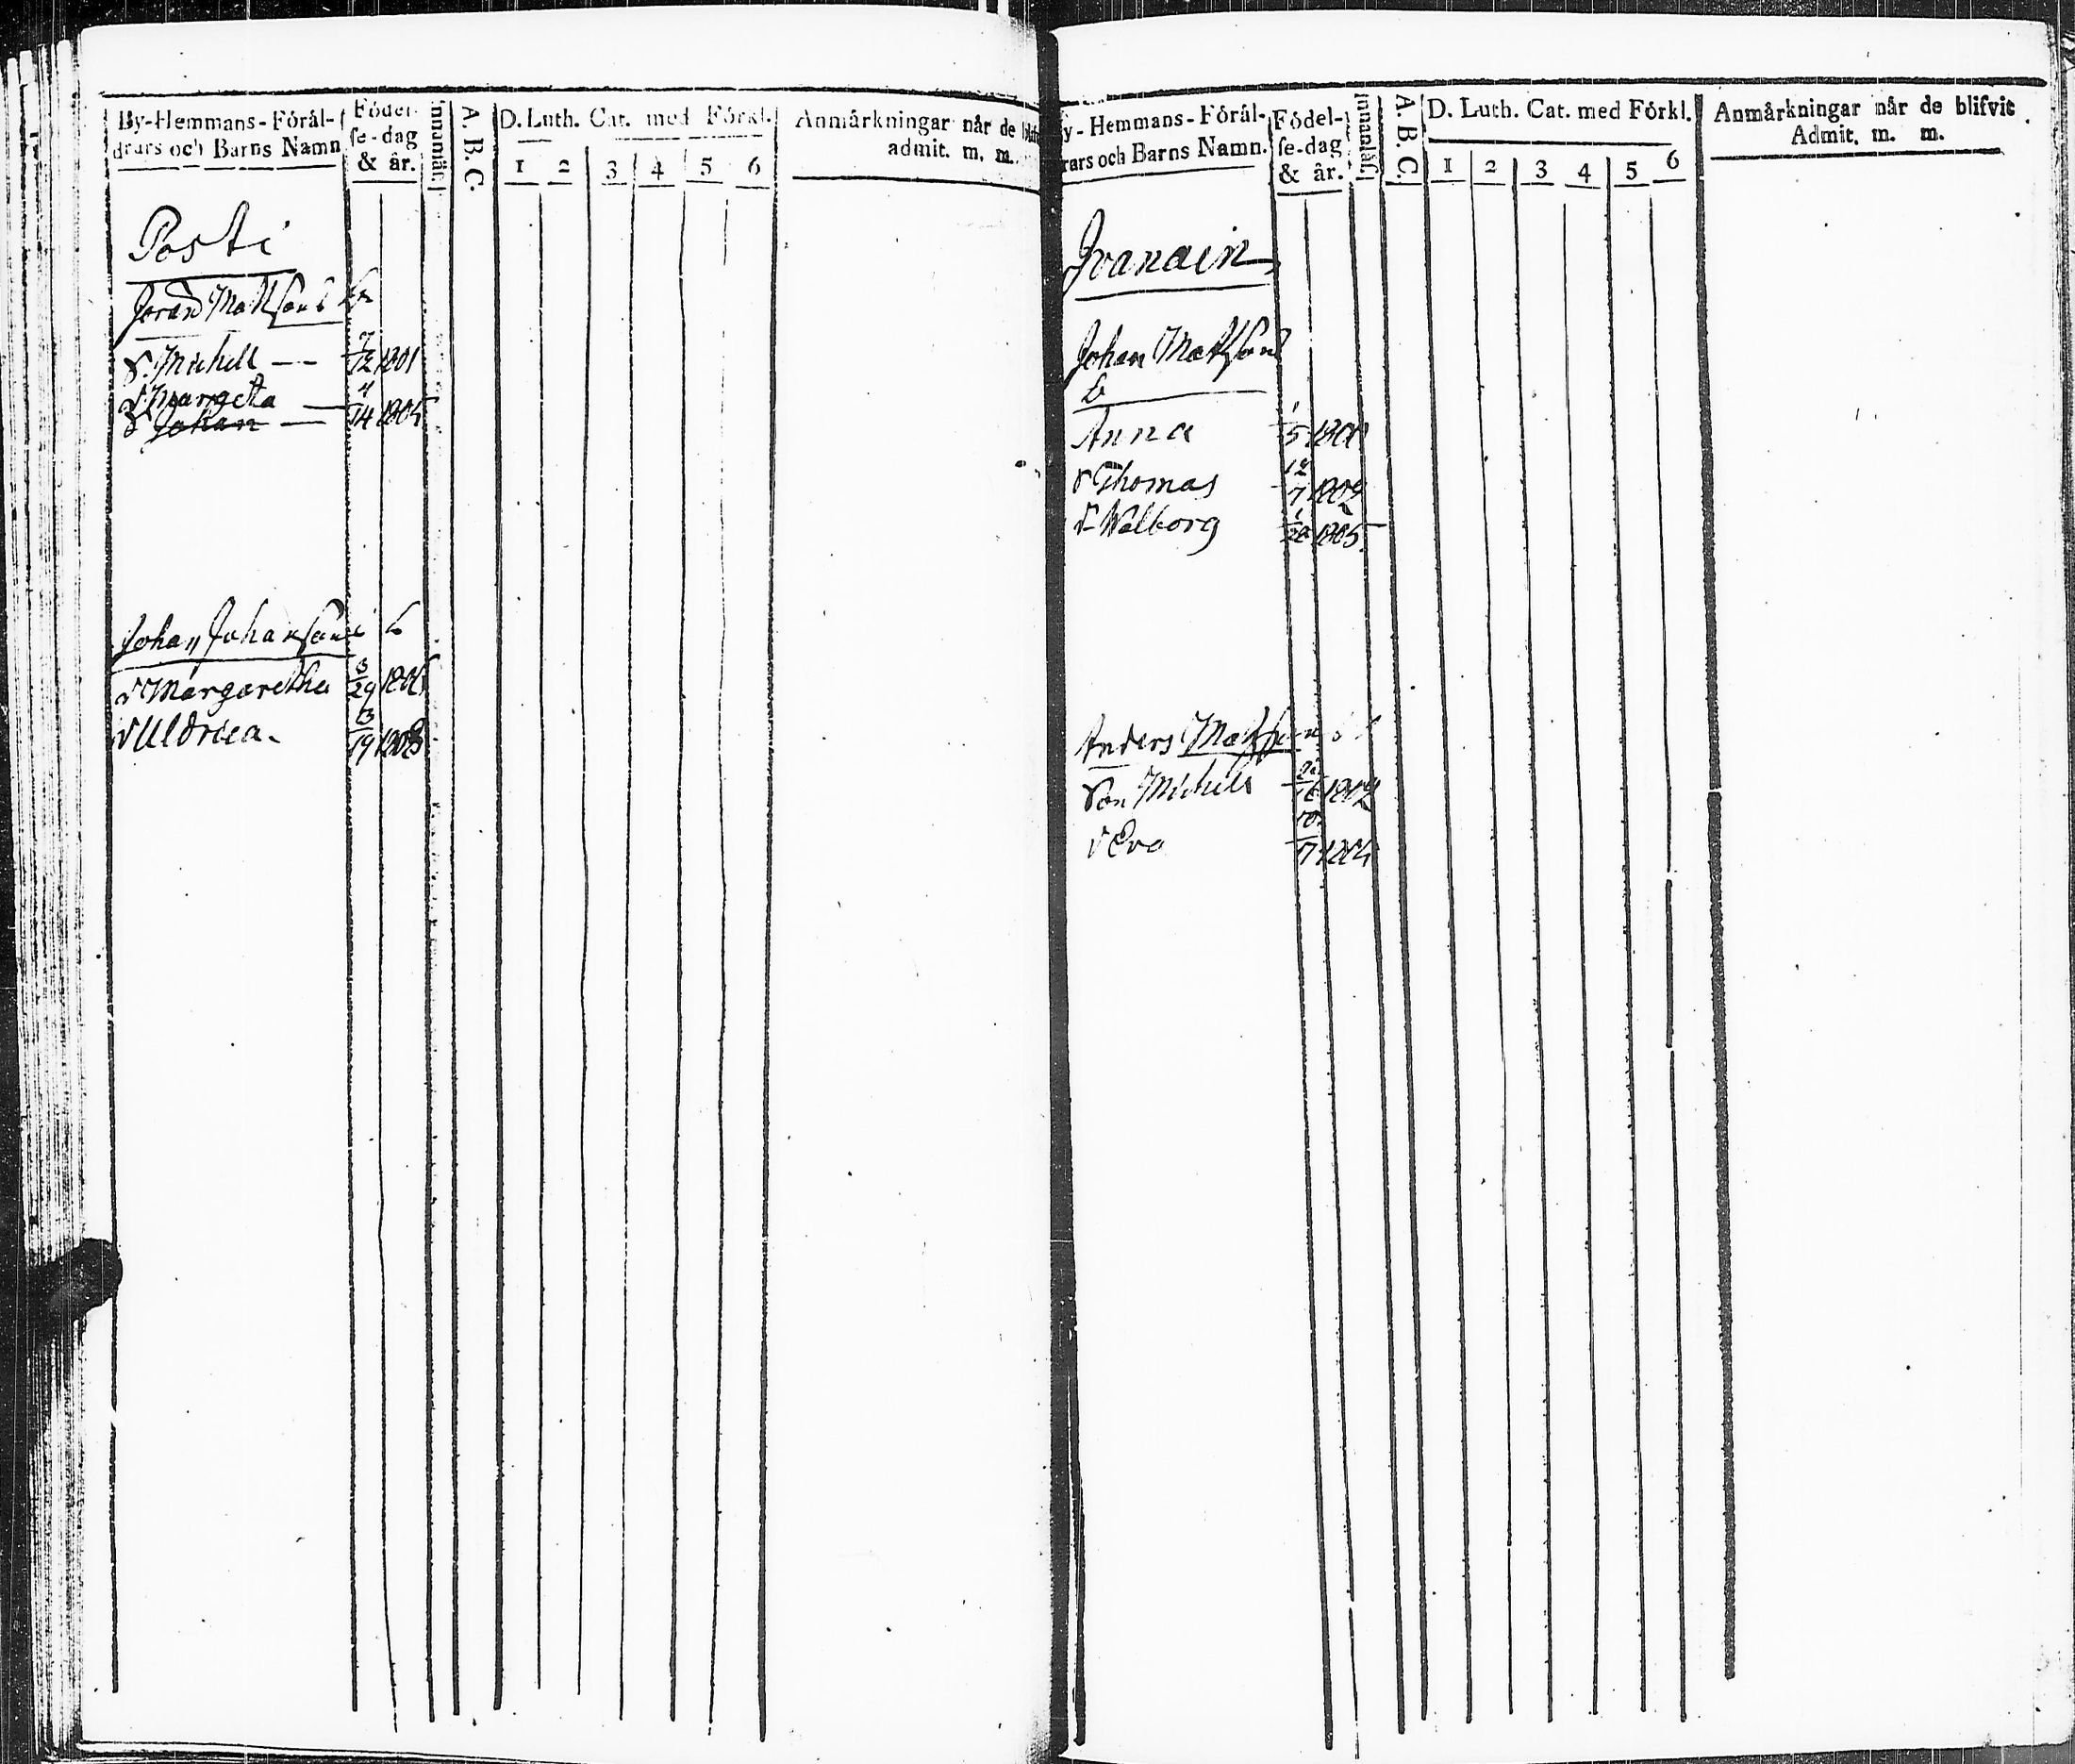 By-Hemmans-Förål-
drars och Barns Namn
Födel-
se-dag
& år.
Innanläs.
A. B. C.
D. Luth. Cat. med Förkl.
1 2 3 4 5 6
Anmärkningar når de
admit. m. m.
Posti
Göran Mattsons
S. Michell — 7/12 1801
d Margeta — 4/14 1804
S Johan —
Johan Johansons b
d Margaretha 8/29 1806
d Uldrica. 19 1808
By-Hemmans-Förål-
drars och Barns Namn.
Födel-
se-dag
& år.
Innanläs.
A. B. C.
D. Luth. Cat. med Förkl.
1 2 3 4 5 6
Anmärkningar når de blifvit
Admit. m. m.
Ivanain
Johan Matsons
b
Anna 1/5 1800
S Thomas 12/7 1802
d Walborg 1/20 1805.
Anders Matssons
Son Michell 16 1802
d Eva 10/17 1804